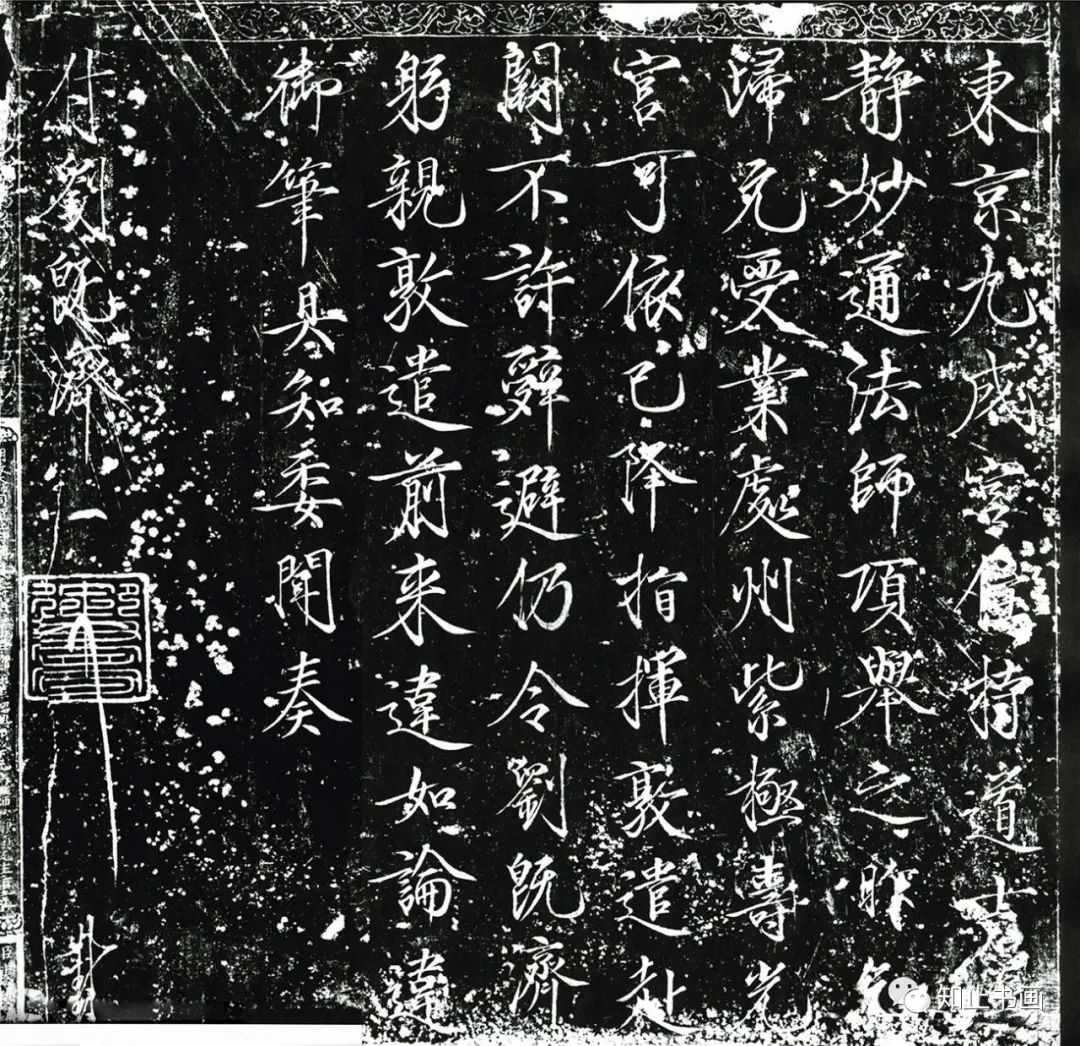 東京九成宮住持道士
静妙通法師項舉之昨乞
歸元受業處州紫極壽光
宮可依已降指揮敦遣赴
闕不許辭避仍令劉既濟
躬親敦遣前来違如論違
御筆具知委聞奏
付劉既濟
知止书画